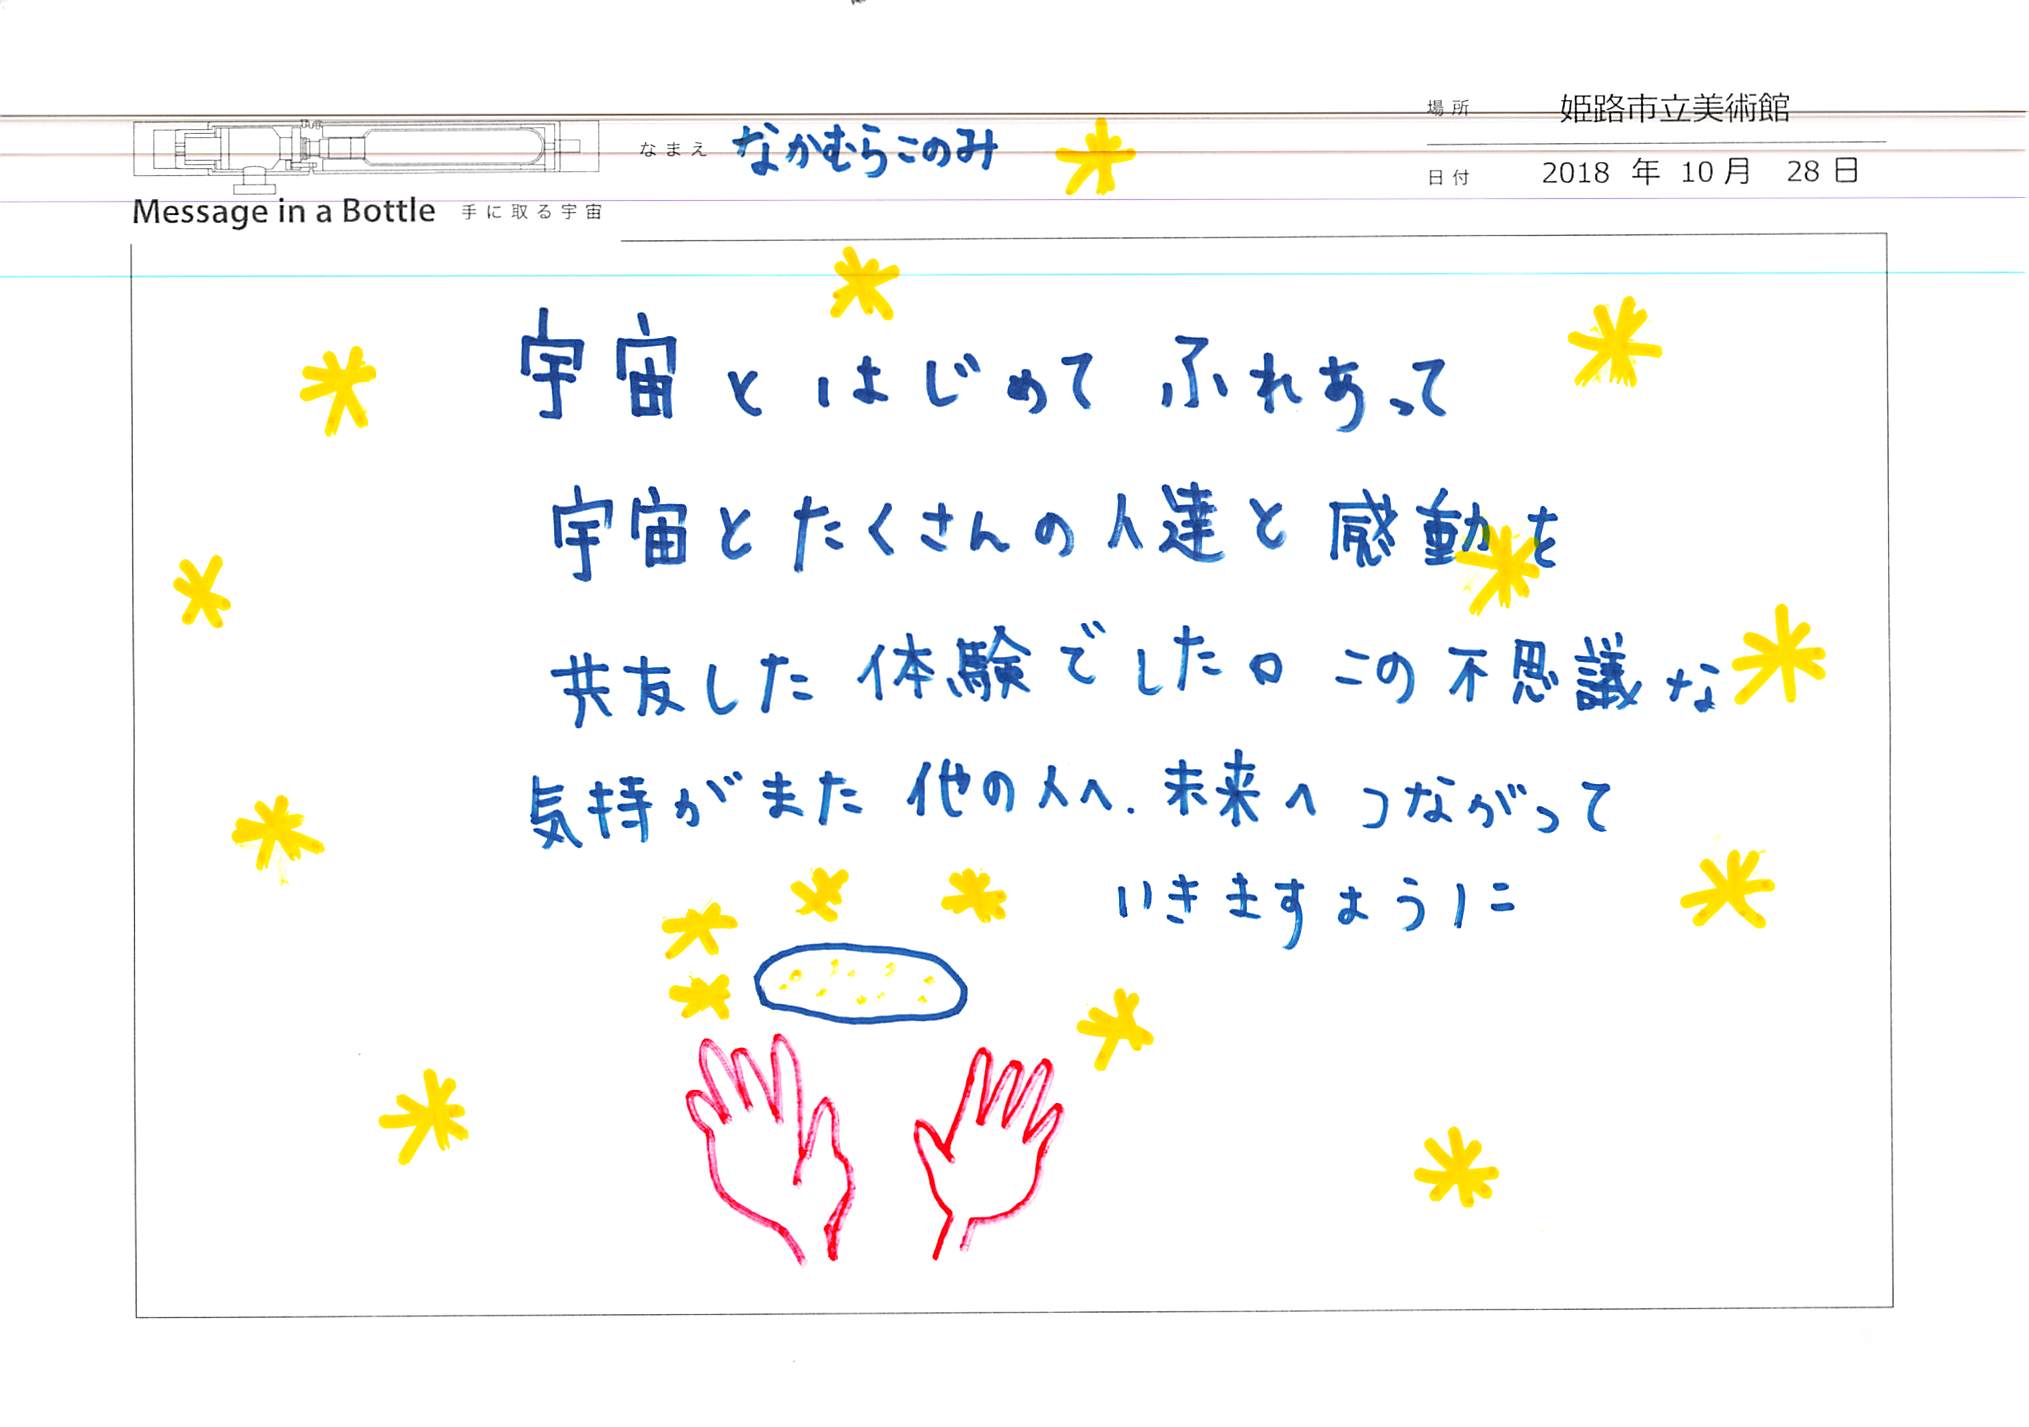 場所 姫路市立美術館
なまえ なかむらこのみ
日付 2018 年 10 月 28 日
Message in a Bottle 手に取る宇宙
宇宙とはじめてふれあって
宇宙とたくさんの人達と感動を
共友した体験でした。この不思議な
気持がまた他の人へ、未来へつながって
いきますように